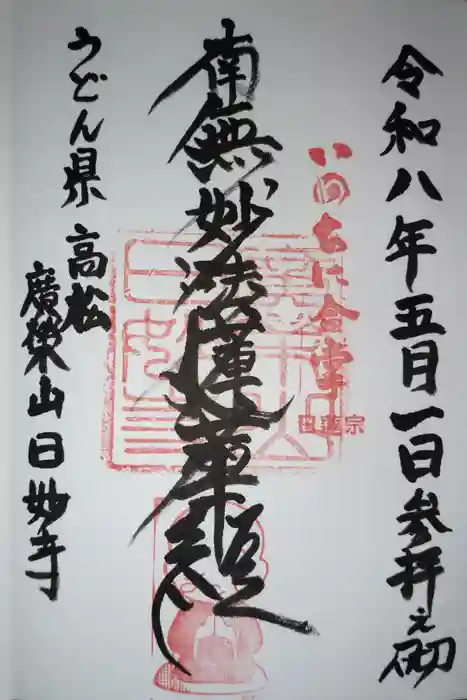 令和八年五月一日参拝之砌
いのちに合掌
日蓮宗
南無妙法蓮華経
うどん県 高松
廣榮山日妙寺